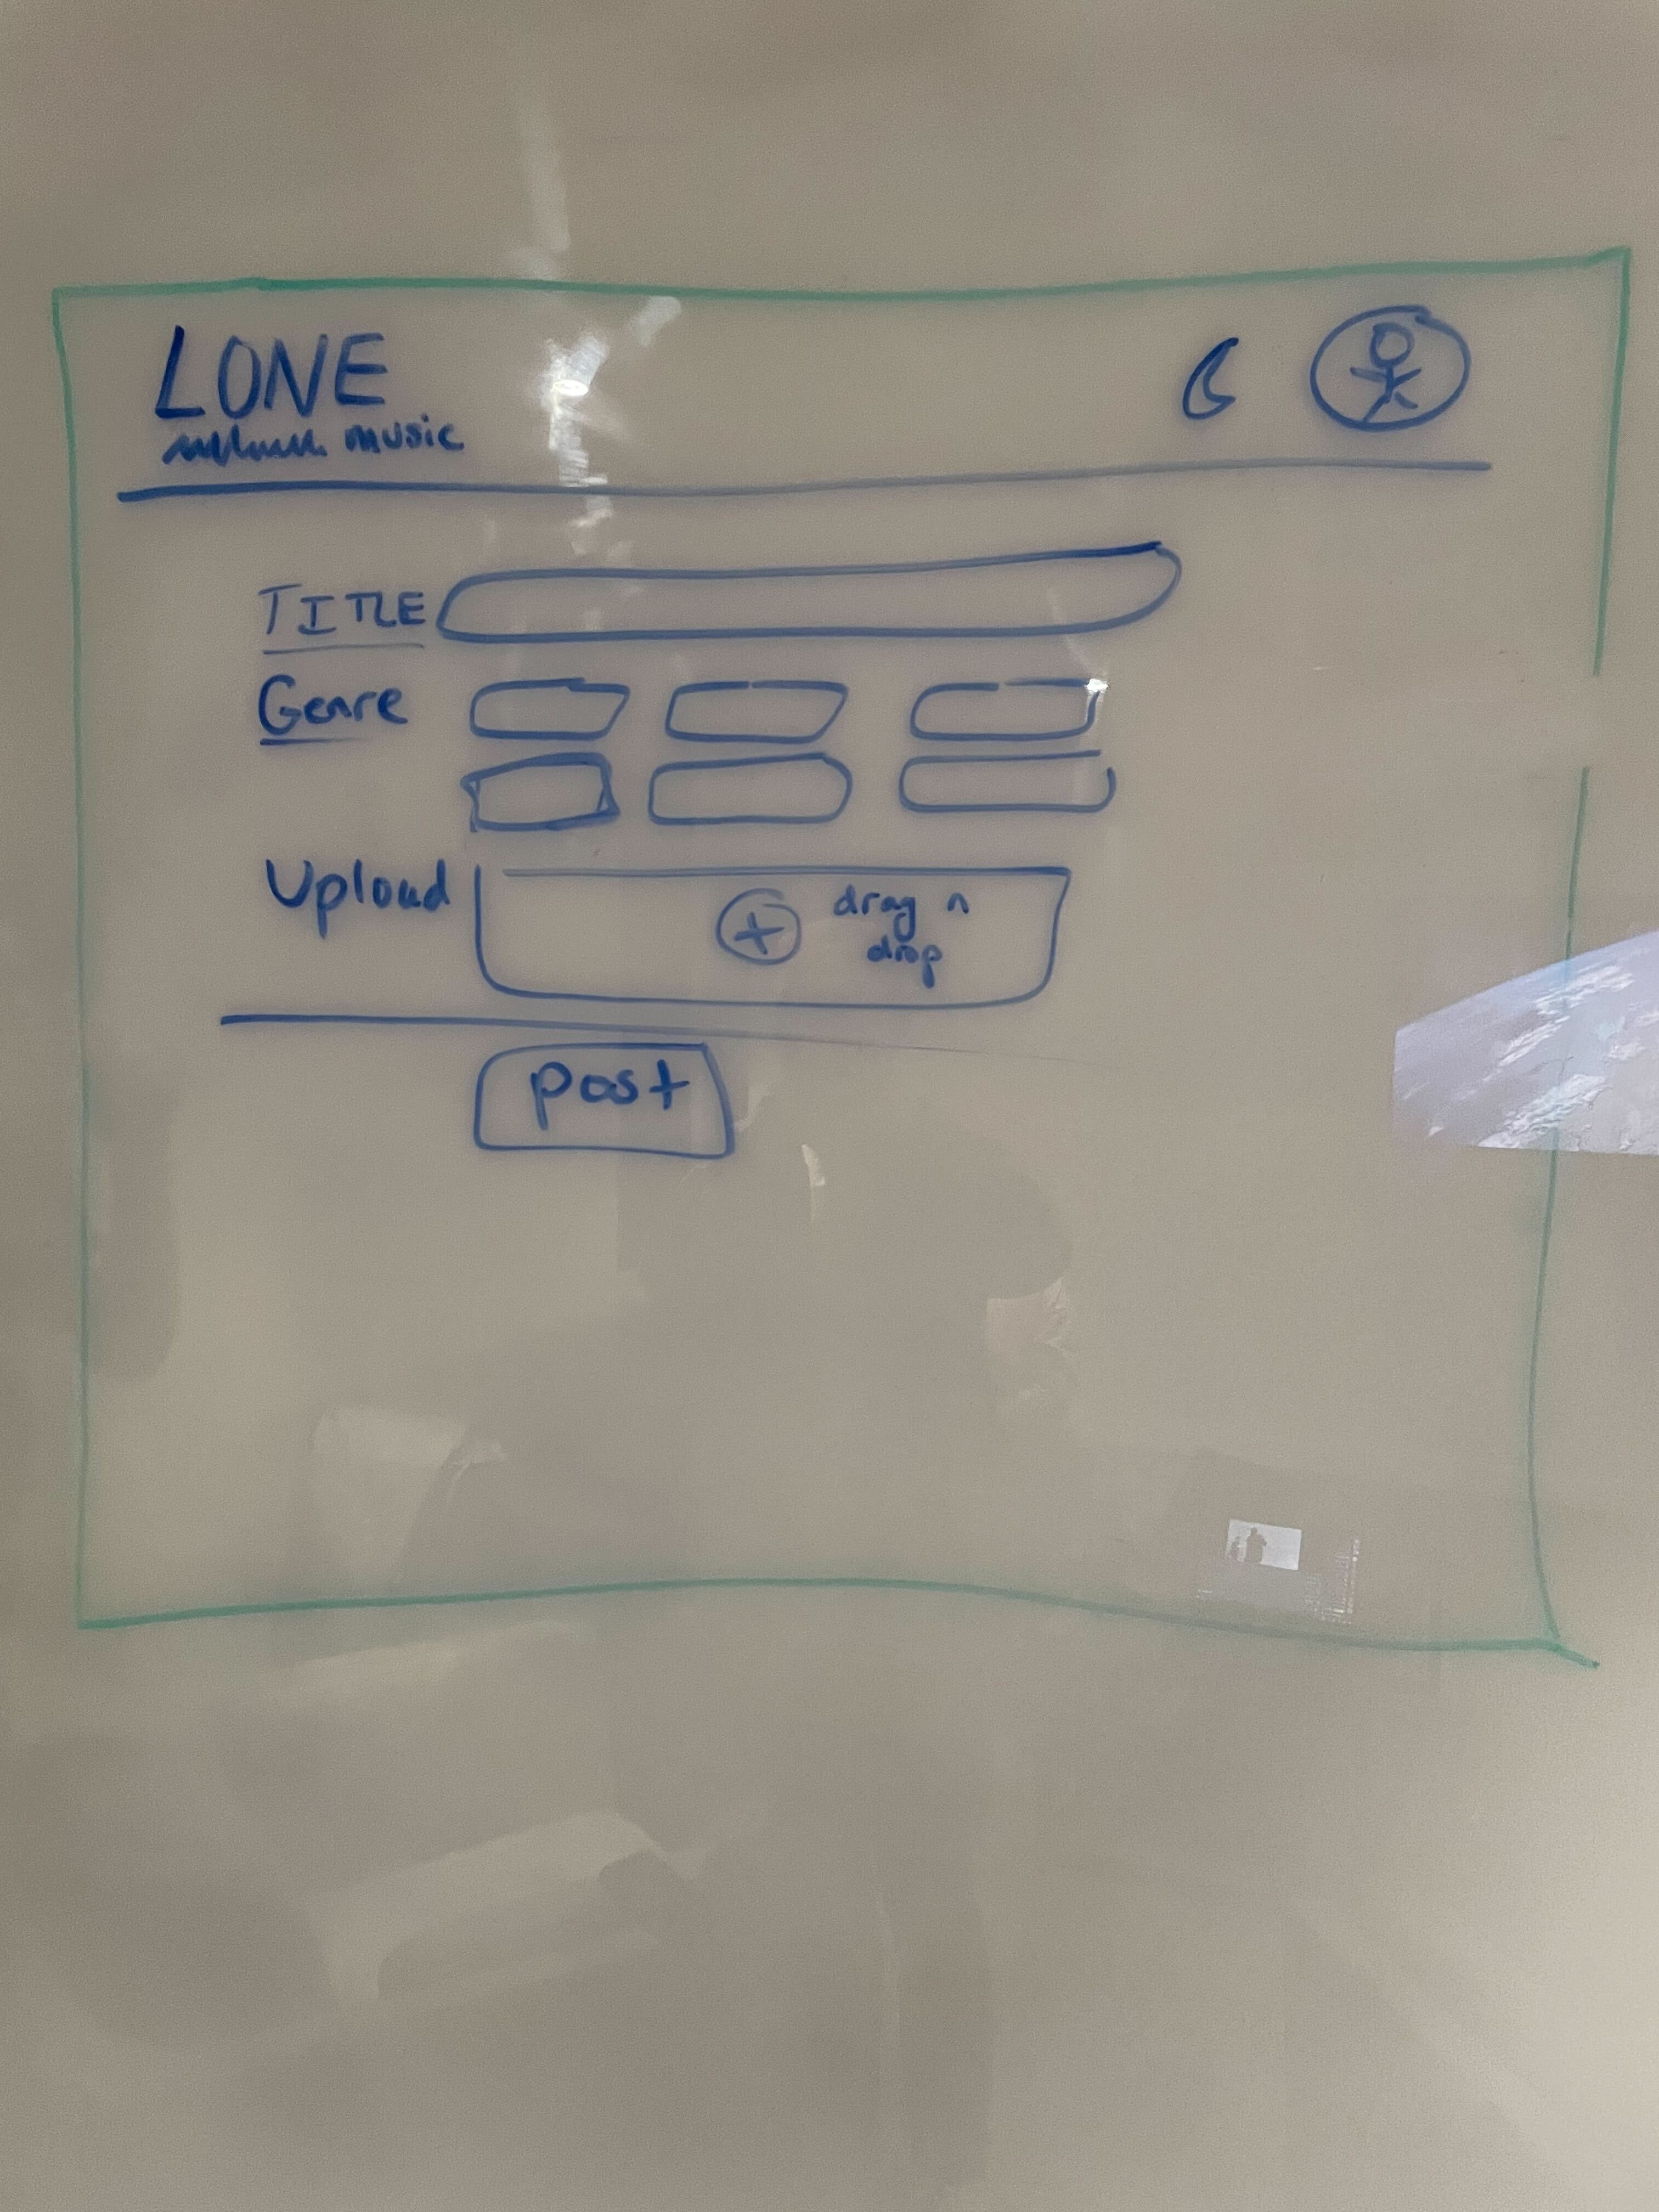 LONE
music
TITLE
Genre
Upload
drag n
drop
post